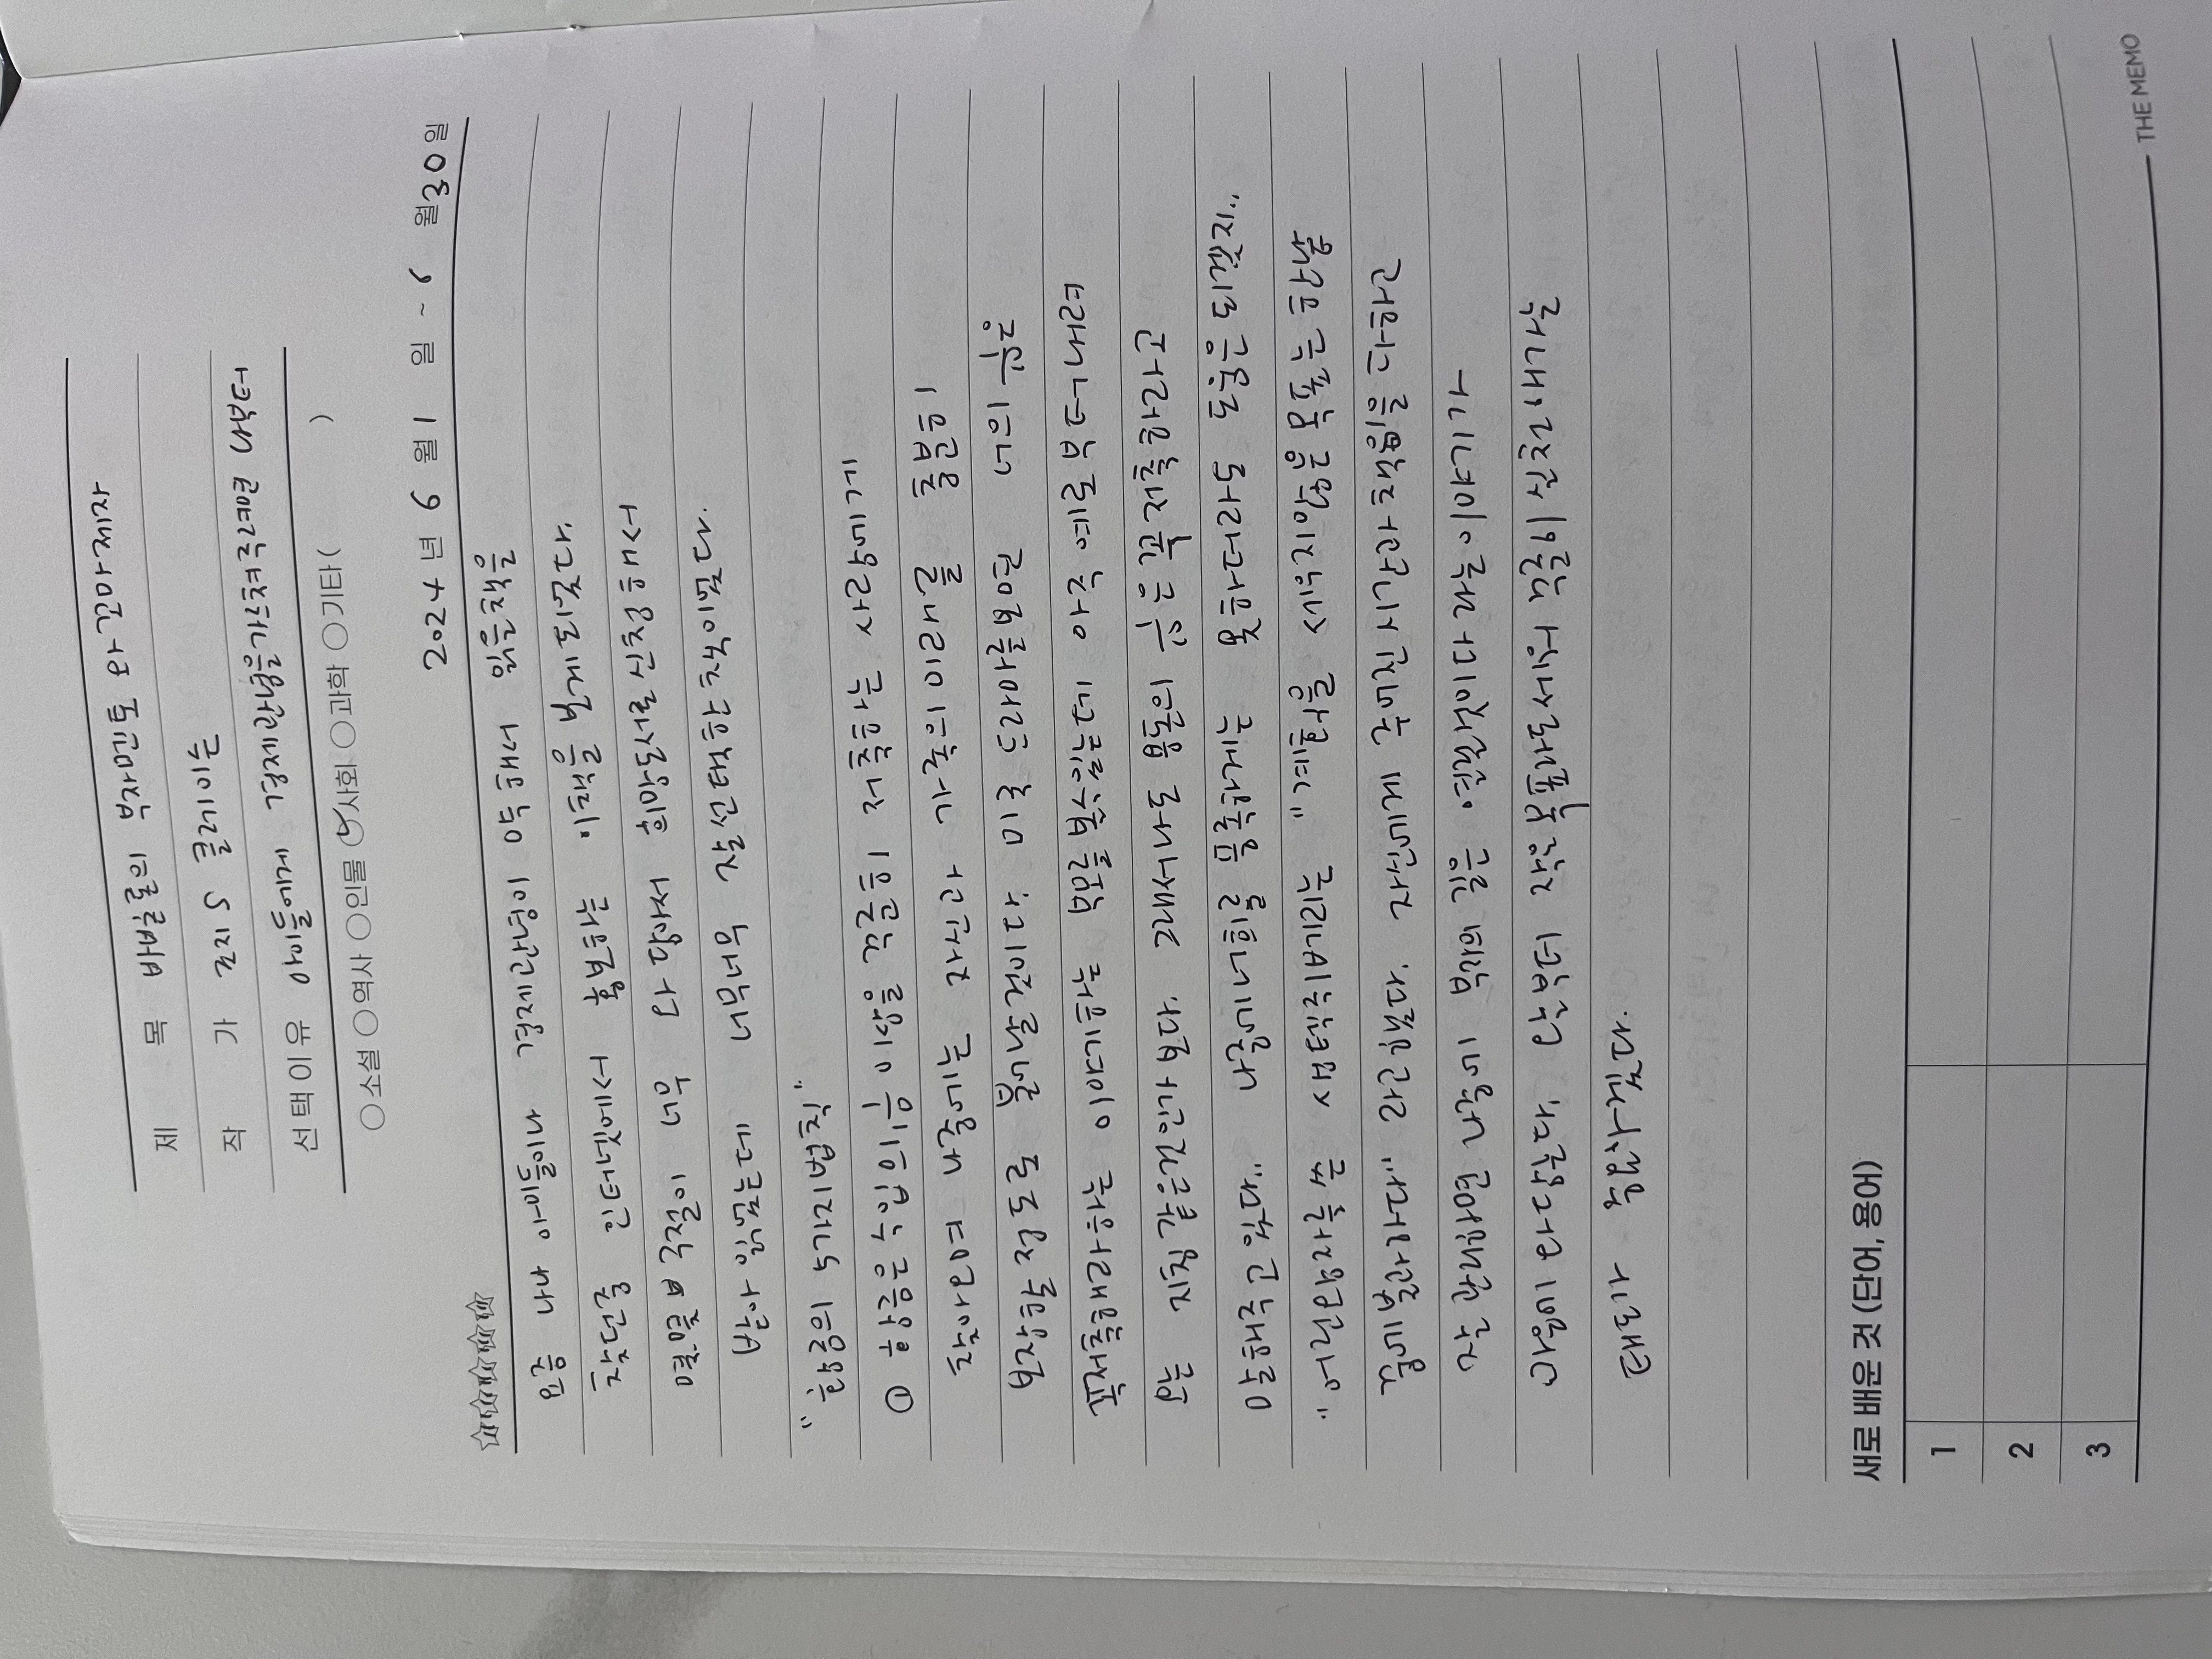 제 목 바빌론의 부자멘토 와 꼬마제자
작 가 조지 S 클레이슨
선택이유 아이들에게 경제관념을가르쳐주려면 나부터
소설 역사 인물 사회 과학 기타 ( )
2024 년 6 월 1 일 ~ 6 월 30 일
요즘 나나 아이들이나 경제관념이 약해서 읽을책을
찾던중 인터넷에서 홍보하는 이책을 보게되었다.
몇몇 구절이 너무 와 닿아서 희망도서로 신청해서
받아 읽었는데 너무너무 잘선택한 책이었다.
"황금의 5가지법칙"
① 황금은 수입의 1/10 이상을 꾸준히 저축하는 사람에게
찾아오며 나중에는 자신과 가족의 미래를 충분히
보장할 정도로 불어날것이다. 미국 드라마를보면 너의 1/10은
꼭저축해라하는 이야기하는 부모를 볼수있는데 아주 예로부터내려
오는 지침같은것인가 보다. 그래서나도 용돈의 1/10은 꼭 저축하라고
말해주고있다.. 나중에너희를 풍족하게는 못하더라도 도움은 되겠지..
"어린왕자를 쓴 생텍쥐베리는 "계획을 세우지않은 목표는 한낱
꿈에불과하다" 라고했다. 자신에게 주어진 시간과 책임을 다하고
잘 관리하면 나중에 부자의 길은 열릴것이다 라는이야기가
마음에 와닿는다. 나부터 작은목표라도세워 꾸준히 실천해가는
태도가 중요하겠다.
새로 배운 것 (단어, 용어)
1
2
3
THE MEMO